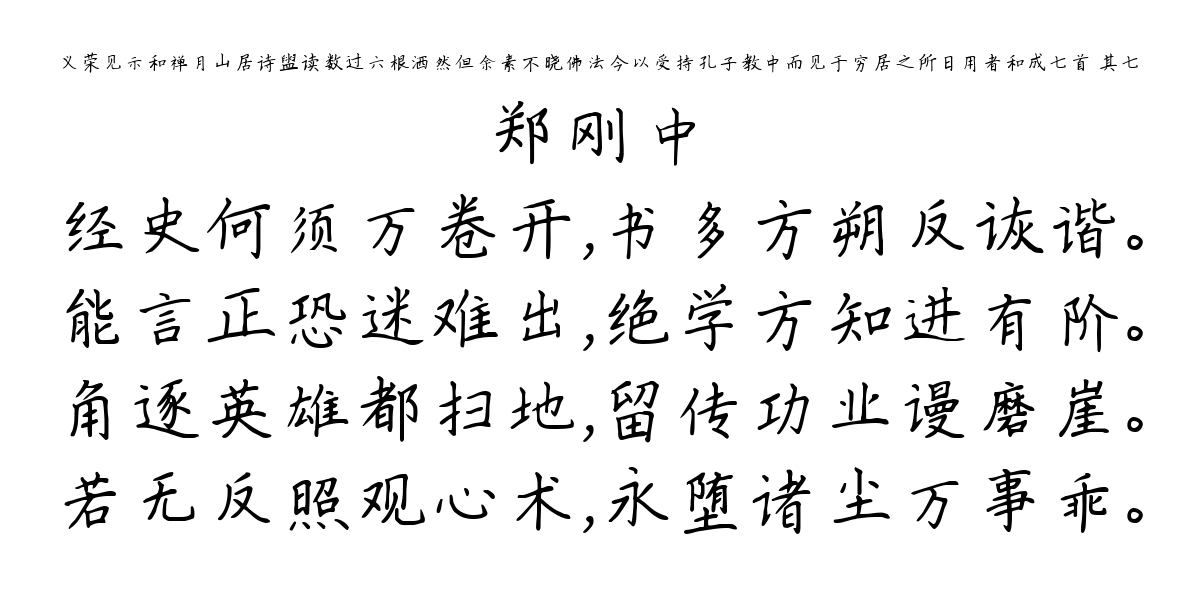 义荣见示和禅月山居诗盥读数过六根洒然但余素不晓佛法今以受持孔子教中而见于穷居之所日用者和成七首 其七
郑刚中
经史何须万卷开,书多方朔反诙谐。
能言正恐迷难出,绝学方知进有阶。
角逐英雄都扫地,留传功业谩磨崖。
若无反照观心术,永堕诸尘万事乖。